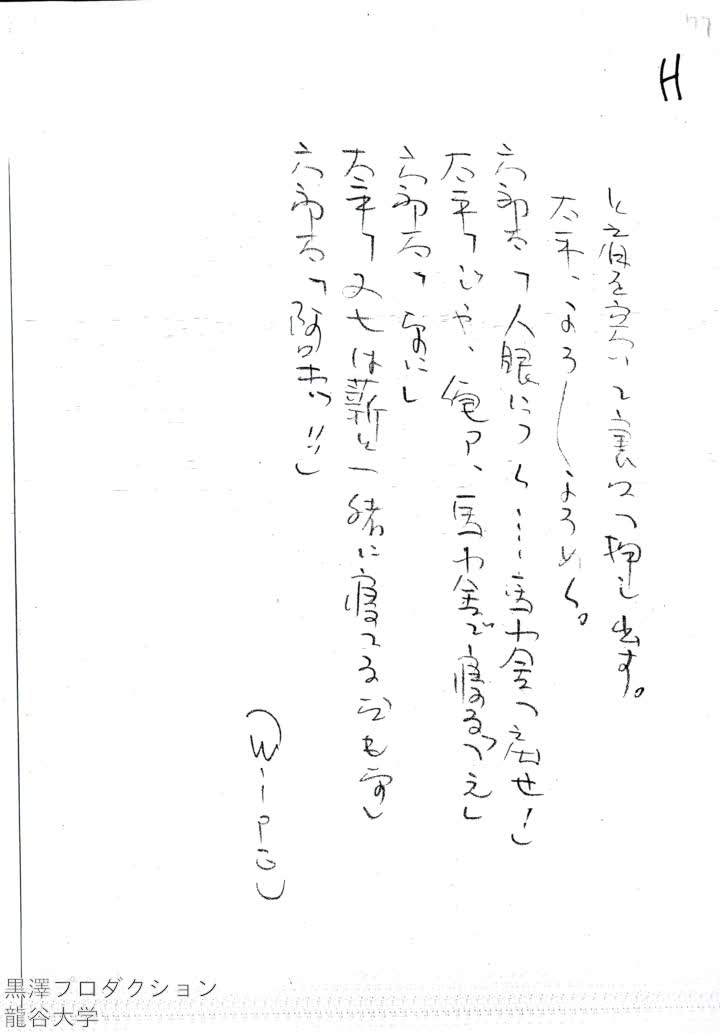 77
H
と肩を突いて裏へ押し出す。
太平、よろ〱よろめく。
六郎太「人眼につく…馬小舎へ戻せ!」
太平「じゃ、俺ァ、馬小舎で寝るつえ」
六郎太「なに」
太平「又七は薪と一緒に寝てる
六郎太「阿呆ッ!!」
(Wipe)
黒澤プロダクション
龍谷大学